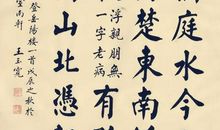 庭水今
楚東南
浮親朋無
一字老病
有
山北憑
登岳陽樓一首戊辰之秋於
南軒 王玉寬